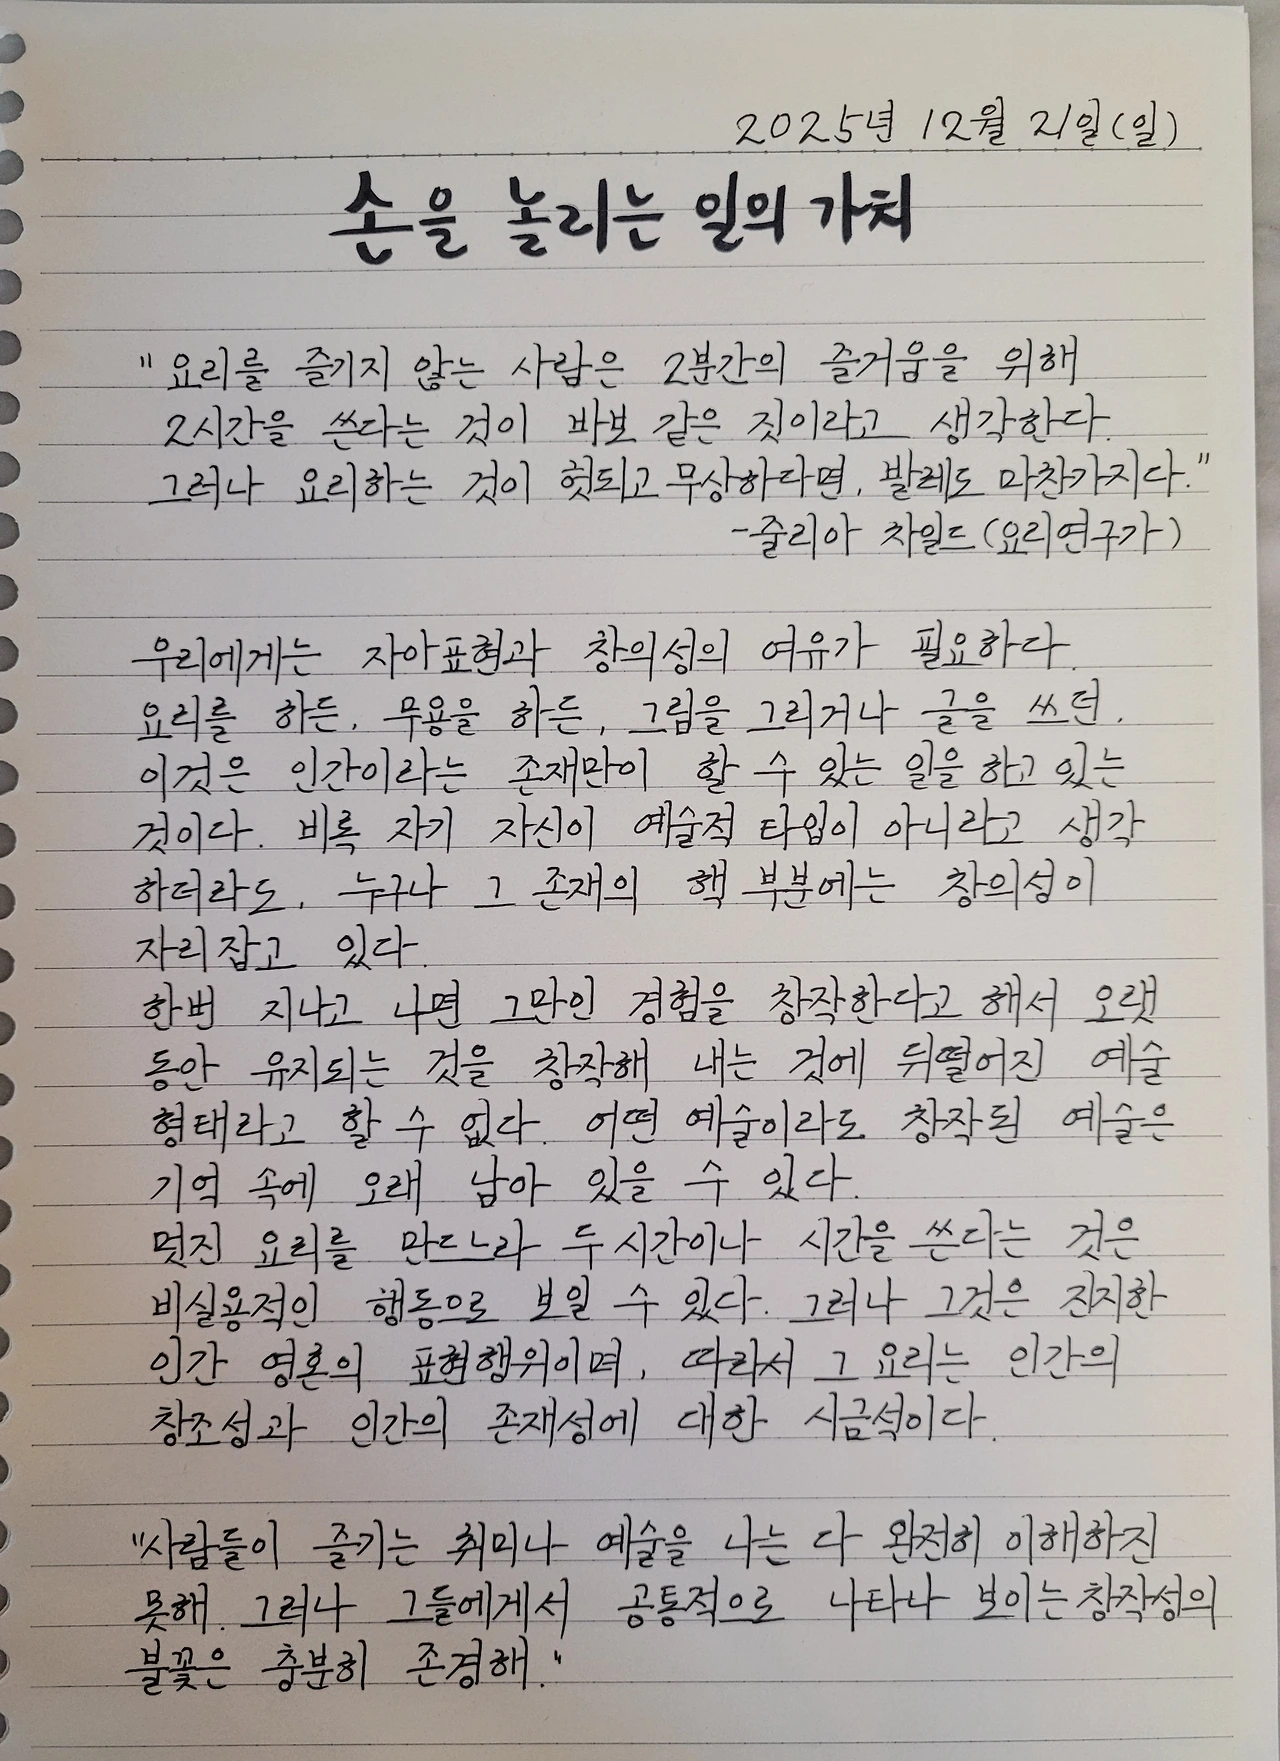 2025년 12월 21일(일)
손을 놀리는 일의 가치
"요리를 즐기지 않는 사람은 2분간의 즐거움을 위해
2시간을 쓴다는 것이 바보 같은 짓이라고 생각한다.
그러나 요리하는 것이 헛되고 무상하다면, 발레도 마찬가지다."
-줄리아 차일드(요리연구가)
우리에게는 자아표현과 창의성의 여유가 필요하다.
요리를 하든, 무용을 하든, 그림을 그리거나 글을 쓰던,
이것은 인간이라는 존재만이 할 수 있는 일을 하고 있는
것이다. 비록 자기 자신이 예술적 타입이 아니라고 생각
하더라도, 누구나 그 존재의 핵 부분에는 창의성이
자리잡고 있다.
한번 지나고 나면 그만인 경험을 창작한다고 해서 오랫
동안 유지되는 것을 창작해 내는 것에 뒤떨어진 예술
형태라고 할 수 없다. 어떤 예술이라도 창작된 예술은
기억 속에 오래 남아 있을 수 있다.
멋진 요리를 만드느라 두 시간이나 시간을 쓴다는 것은
비실용적인 행동으로 보일 수 있다. 그러나 그것은 진지한
인간 영혼의 표현행위이며, 따라서 그 요리는 인간의
창조성과 인간의 존재성에 대한 시금석이다.
"사람들이 즐기는 취미나 예술을 나는 다 완전히 이해하진
못해. 그러나 그들에게서 공통적으로 나타나 보이는 창작성의
불꽃은 충분히 존경해."